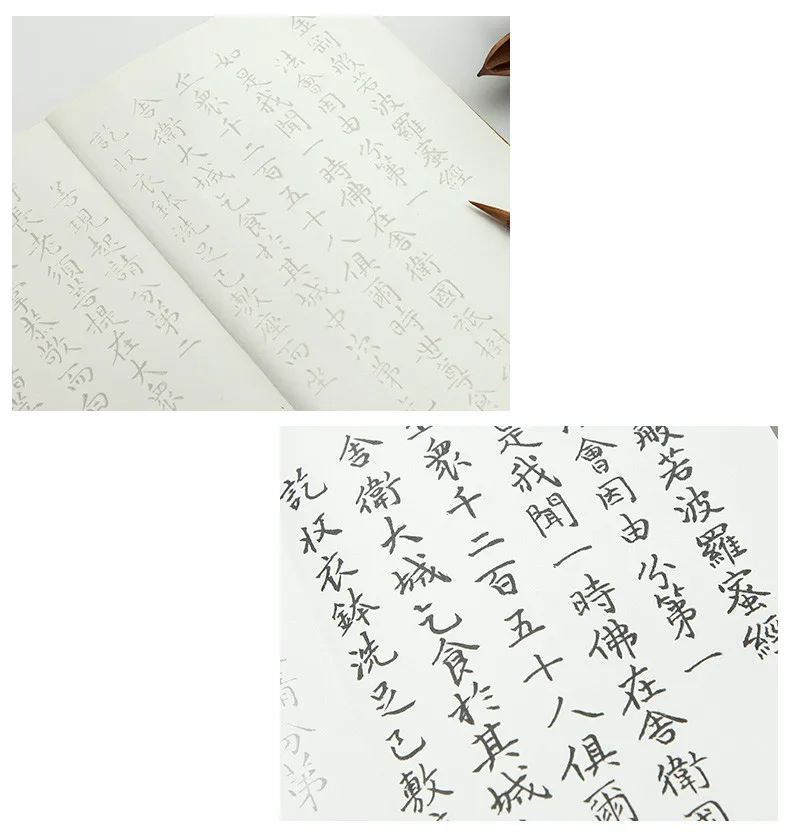 金剛般若波羅蜜經
法會因由分第一
如是我聞一時佛在舍衛國祇樹
丘眾千二百五十人俱爾時世尊食
舍衛大城乞食於其城中次第乞
訖收衣鉢洗足已敷座而坐
善現起請分第二
長老須菩提在大眾
掌恭敬而白
般若波羅蜜經
會因由分第一
是我聞一時佛在舍衛國
眾千二百五十人俱爾
舍衛大城乞食於其城
訖收衣鉢洗足已敷
請分第